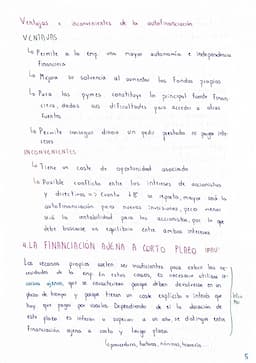 Ventajas e inconvenientes de la autofinanciación
VENTAJAS
↳ Permite a la emp. una mayor autonomía e independencia
financiera
↳ Mejora su solvencia al aumentar los fondos propios
↳ Para las pymes constituye la principal fuente finan-
ciera, dadas sus dificultades para acceder a otras
fuentes
↳ Permite conseguir dinero sin pedir prestado ni pagar inte-
reses
INCONVENIENTES
↳ Tiene un coste de oportunidad asociado
↳ Posible conflicto entre los intereses de accionistas
y directivos => Cuanto +B se reparta, mayor será la
autofinanciación para nuevas inversiones, pero menor
será la rentabilidad para los accionistas, por lo que
debe buscarse un equilibrio entre ambos intereses
4. LA FINANCIACIÓN AJENA A CORTO PLAZO
Los recursos propios suelen ser insuficientes para cubrir las ne-
cesidades de la emp. En estos casos, es necesario utilizar re-
cursos ajenos, que se caracterizan porque deben devolverse en un
plazo de tiempo y porque tienen un coste explícito o interés que
hay que pagar por usarlos. Dependiendo de si la duración de
este plazo es inferior o superior a un año, se distingue entre
financiación ajena a corto y largo plazo.
5